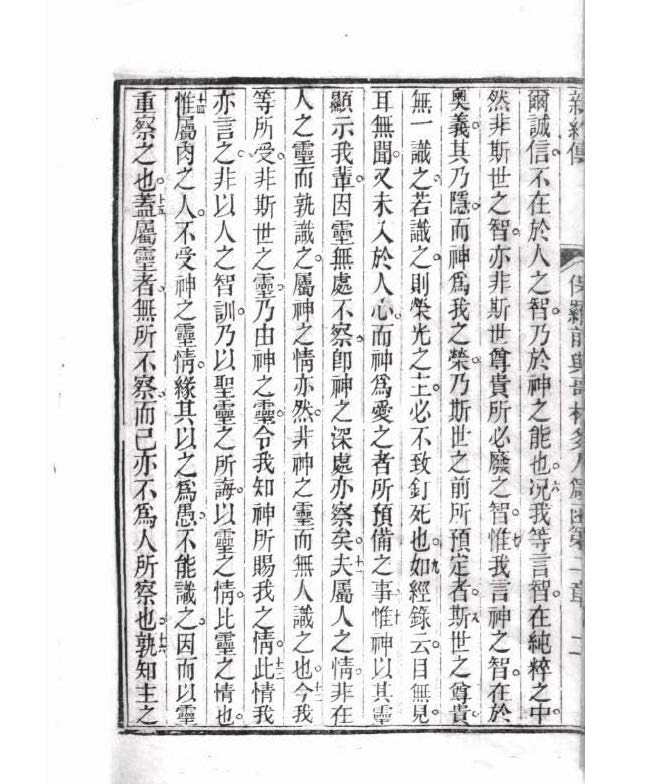 新約傳 保羅前與哥林多人篇函第 章 二
爾誠信。不在於人之智。乃於神之能也。六况我等言智。在純粹之中。
然非斯世之智。亦非斯世尊貴所必廢之智。七惟我言神之智。在於
奧義。其乃隱。而神爲我之榮。乃斯世之前所預定者。八斯世之尊貴。
無一識之。若識之。則榮光之主必不致釘死也。九如經錄云。目無見。
耳無聞。又未入於人心。而神爲愛之者所預備之事。十惟神以其靈
顯示我輩。因靈無處不察。卽神之深處亦察矣。十一夫屬人之情。非在
人之靈而孰識之。屬神之情亦然。非神之靈而無人識之也。十二今我
等所受。非斯世之靈。乃由神之靈。令我知神所賜我之情。十三此情我
亦言之。非以人之智訓。乃以聖靈之所誨。以靈之情。比靈之情也。
十四惟屬肉之人。不受神之靈情。緣其以之爲愚。不能識之。因而以靈
重察之也。十五蓋屬靈者。無所不察。而己亦不爲人所察也。十六孰知主之